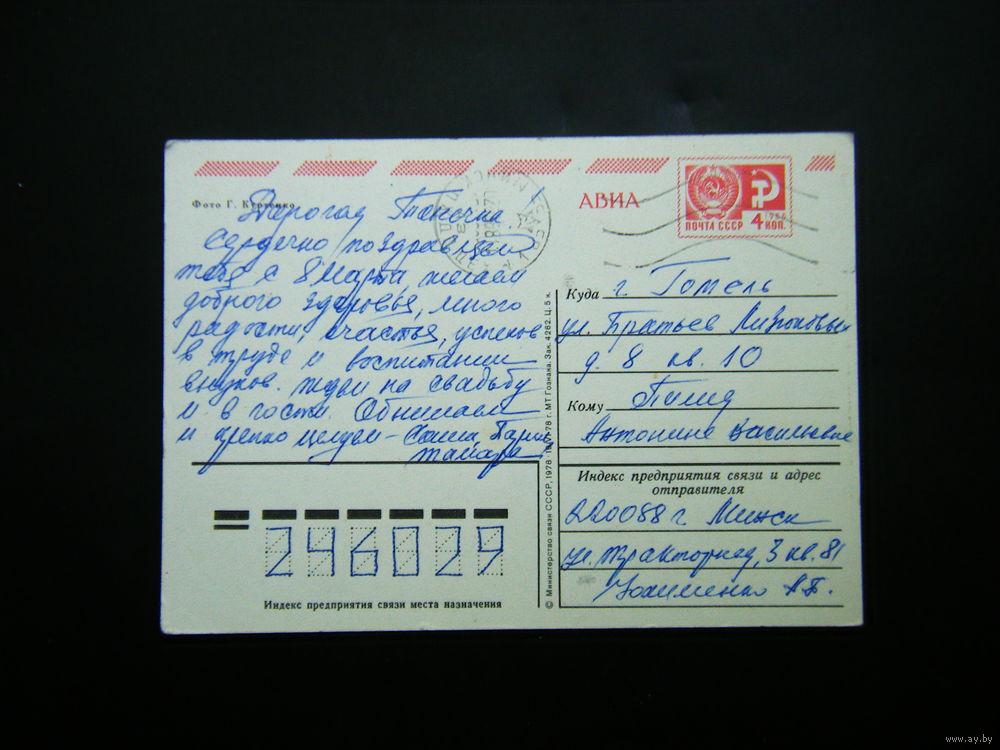 Фото Г. Костенко
Дорогая Танечка!
Сердечно поздравляем
тебя с 8 Марта, желаем
доброго здоровья, много
радости, счастья, успехов
в труде и воспитании
внуков. Ждем на свадьбу
и в гости. Обнимаем
и крепко целуем – Саша,
Тамара
246029
Индекс предприятия связи места назначения
© Министерство связи СССР, 1978 МТ Гознака. Зак. 4262. Ц. 5 к.
АВИА
ПОЧТА СССР 4 КОП.
1966
Куда г. Гомель
ул. Братьев Лизюковых
д. 8 кв. 10
Кому
Антонине Васильевне
Индекс предприятия связи и адрес
отправителя
220088 г. Минск
ул. Тракторная, 3 кв. 81
www.ay.by